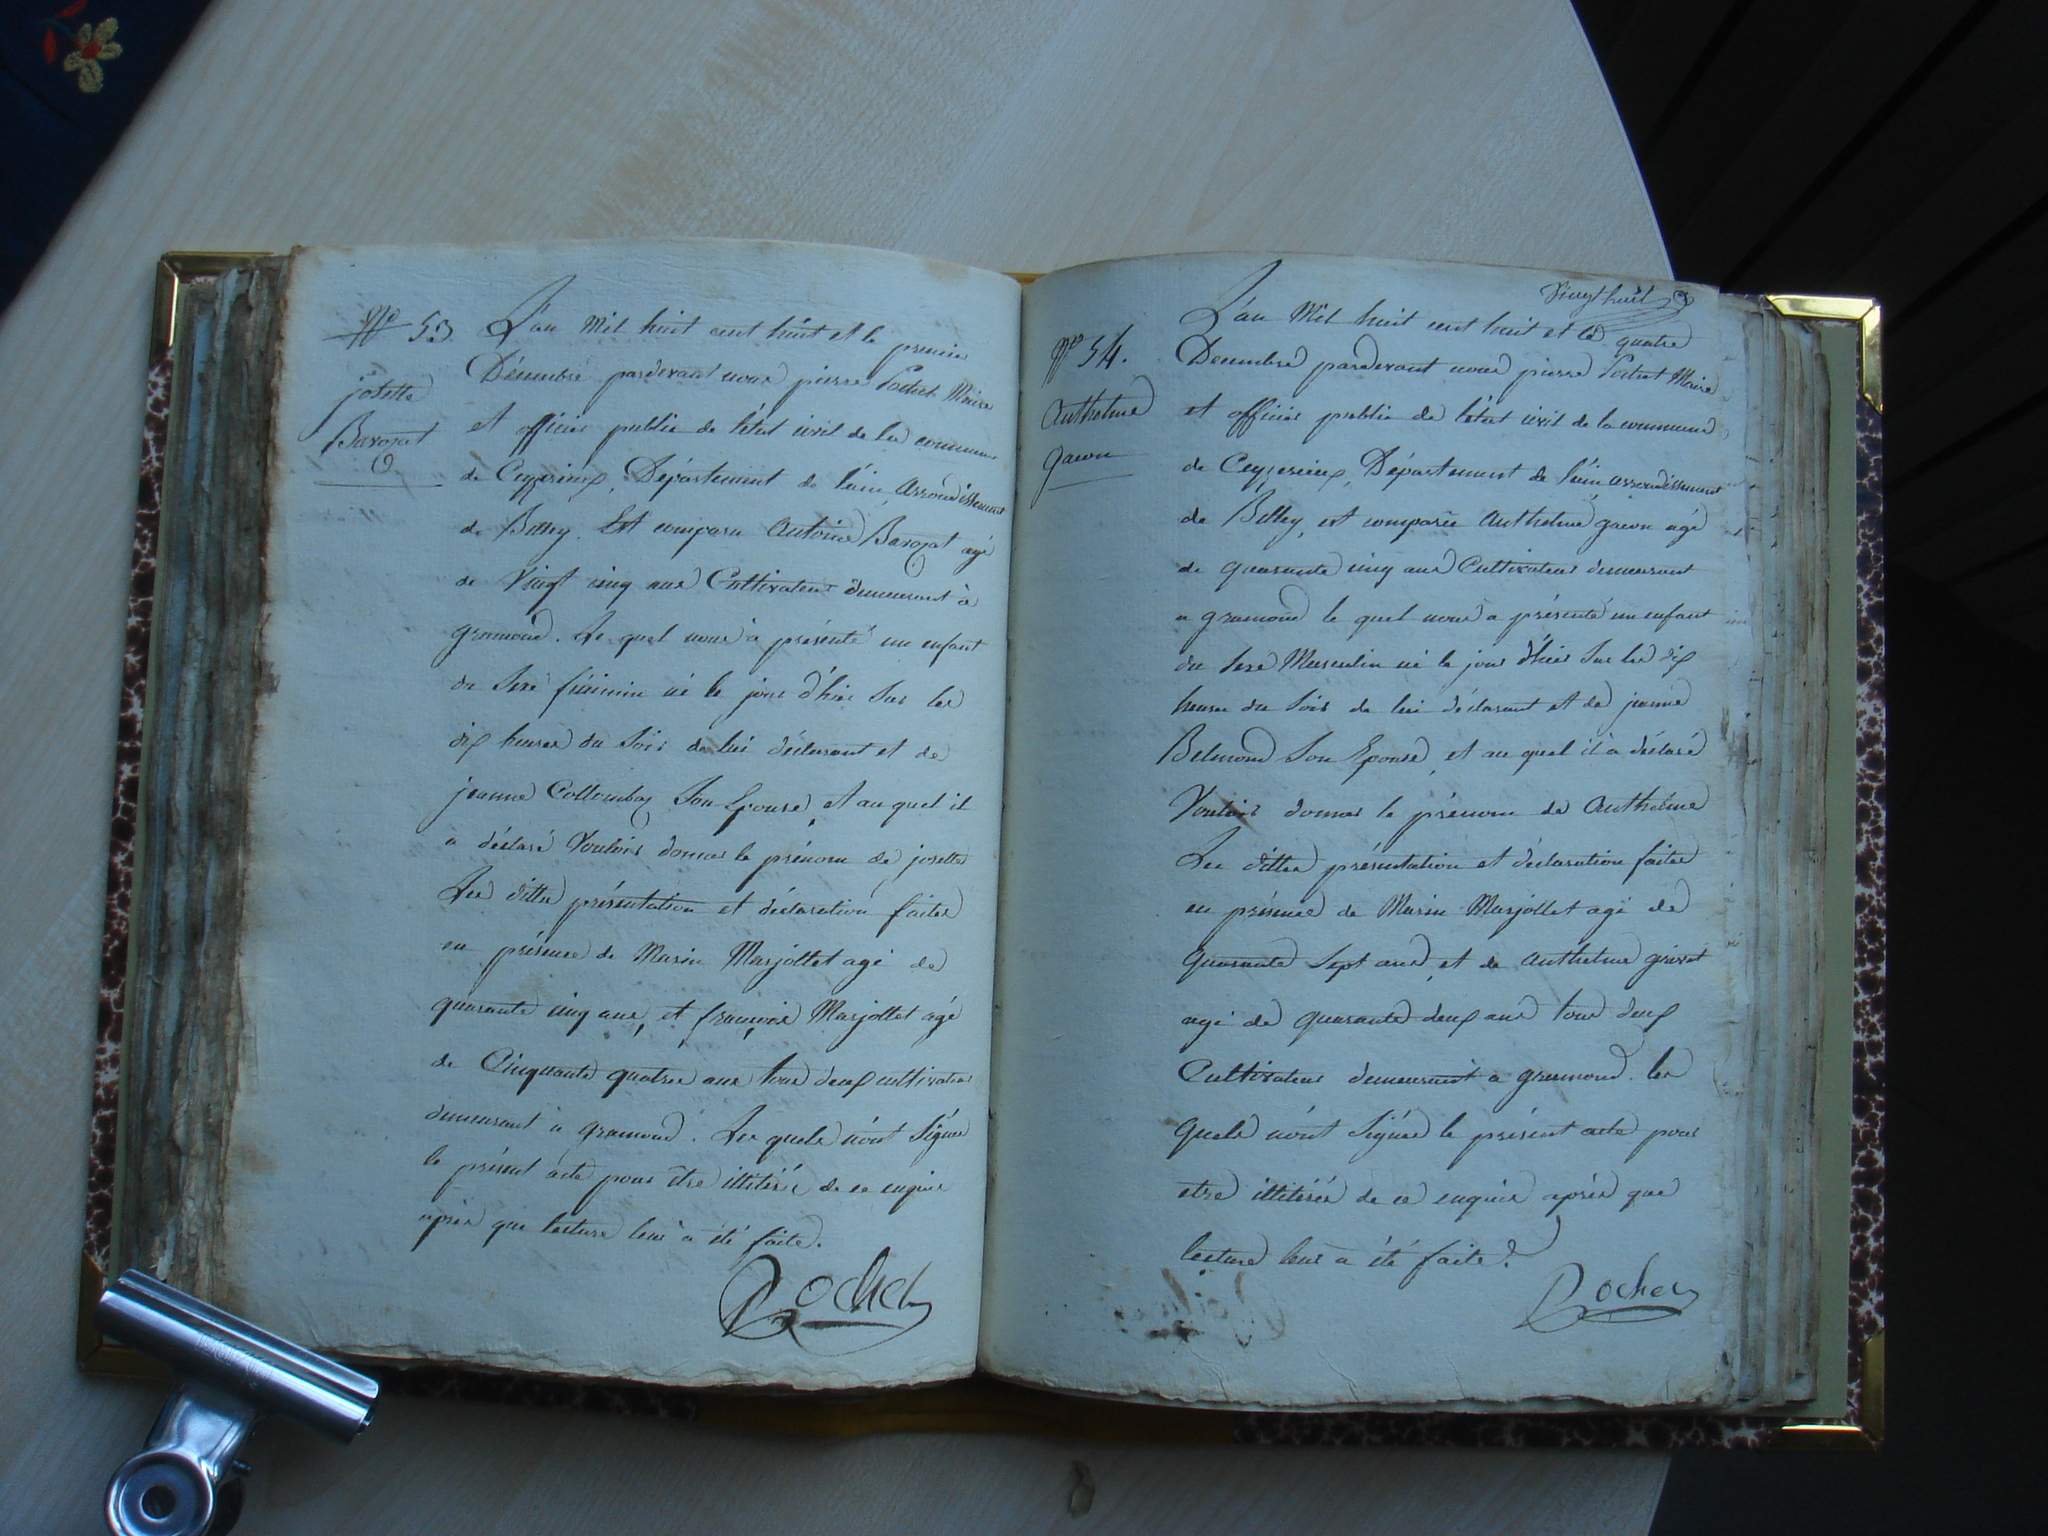 N° 53.
josette
Barozat
L'an Mil huit cent huit et le premier
Décembre pardevant nous pierre Pochet Maire
et officier public de l'état civil de la commune
de Ceyzerieux, Département de l'ain, Arrondissement
de Belley. Est comparu Antoine Barozat agé
de Vingt cinq ans Cultivateur demeurant à
gramond. Le quel nous à présenté un enfant
du Sexe féminin né le jour d'hier Sur les
dix heures du Soir de lui déclarant et de
jeanne Son Epouse, et au quel il
a déclaré Vouloir donner le prénom de josette
Les dittes présentation et déclaration faites
en présence de Marin Marjollet agé de
quarante cinq ans, et françois Marjollet agé
de Cinquante quatre ans tous deux cultivateur
demeurant à gramond. Les quels n'ont Signés
le présent acte pour être illitéré de ce enquis
après que lecture leur à été faite.
Pochet
Vingt huit
N° 54.
Anthelme
gacon
L'an Mil huit cent huit et le quatre
Decembre pardevant nous pierre Pochet Maire
et officier public de l'état civil de la commune
de Ceyzerieux, Département de l'ain arrondissement
de Belley, est comparu Anthelme gacon agé
de quarante cinq ans Cultivateur demeurant
a gramond le quel nous a présenté un enfant
du Sexe Masculin né le jour d'hier Sur les dix
heures du Soir de lui déclarant et de jeanne
Belmond Son Epouse, et au quel il à déclaré
Vouloir donner le prénom de Anthelme
Les dittes présentation et déclaration faites
en présence de Marin Marjollet agé de
quarante Sept ans, et de Anthelme
agé de quarante deux ans tous deux
Cultivateur demeurant a gramond. les
quels n'ont Signés le présent acte pour
etre illitérés de ce enquis après que
lecture leur a été faite.
Pochet